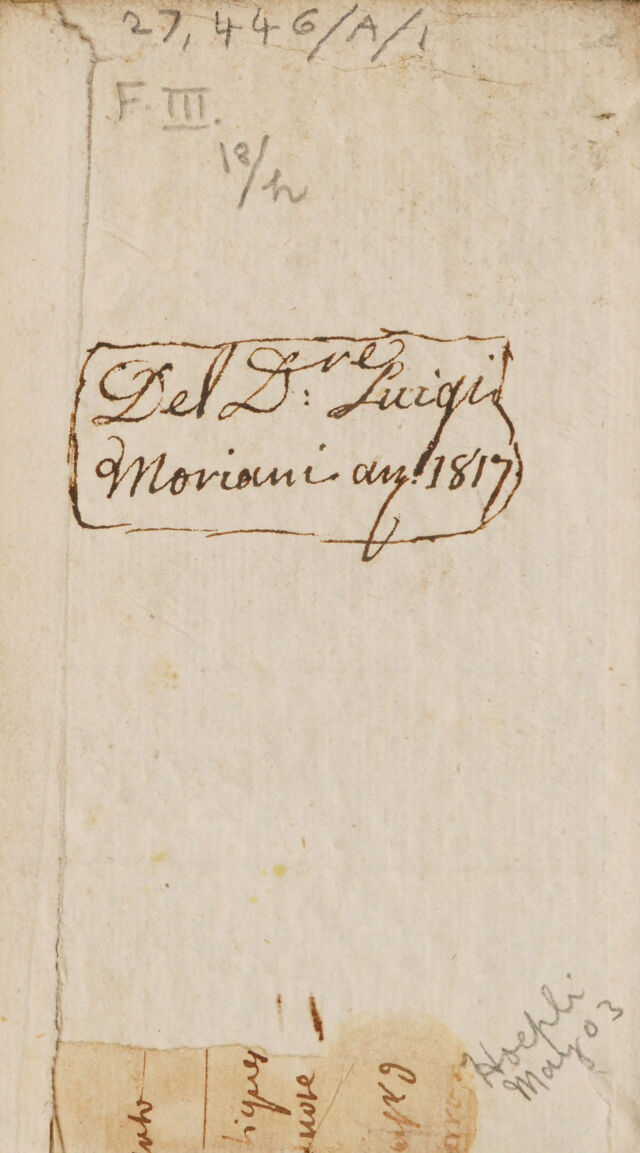 27,446/A/1
F. III.
18/h
Del D:re Luigi
Moriani an: 1817
Hoepli
May 03